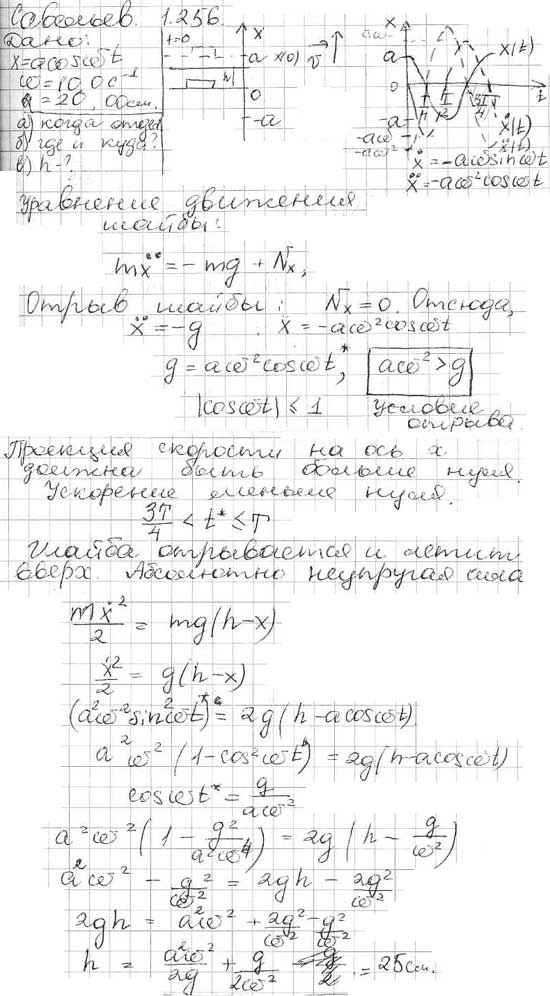 Савельев. 1.256.
Дано:
x=acosωt
ω=10,0 с⁻¹
a=20,00см.
а) когда отделится
б) где и куда?
в) h-?
t=0
x
a x(0) v
M
0
-a
x
aω
a
x(t)
0
t
-a
-aω
-aω²
T/4
T/2
3T/4
T
ẋ(t)
ẍ(t)
ẋ=-aωsinωt
ẍ=-aω²cosωt
Уравнение движения
шайбы:
mẍ=-mg+Nₓ,
Отрыв шайбы: Nₓ=0. Отсюда,
ẍ=-g ẍ=-aω²cosωt
g=aω²cosωt*, aω²>g
|cosωt|≤1 условие
отрыва.
Проекция скорости на ось x
должна быть больше нуля.
Ускорение меньше нуля.
3T/4 < t* ≤ T
Шайба отрывается и летит
вверх. Абсолютно неупругая сила
mẋ²/2 = mg(h-x)
ẋ²/2 = g(h-x)
(a²ω²sin²ωt)* = 2g(h-acosωt)
a²ω²(1-cos²ωt*) = 2g(h-acosωt)
cosωt* = g/aω²
a²ω²(1-g²/a²ω⁴) = 2g(h-g/ω²)
a²ω² - g²/ω² = 2gh - 2g²/ω²
2gh = a²ω² + 2g²/ω² - g²/ω²
h = a²ω²/2g + g/2ω² = 25см.